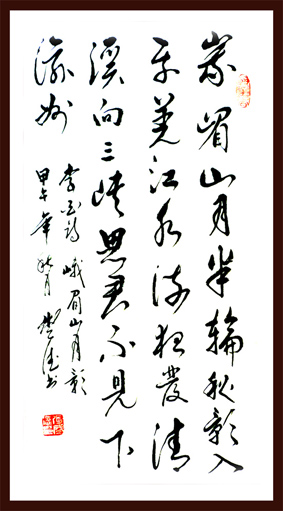 峩眉山月半輪秋影入
平羌江水流夜發清
溪向三峽思君不見下
渝州
李白詩 峨眉山月影
甲午年秋月书